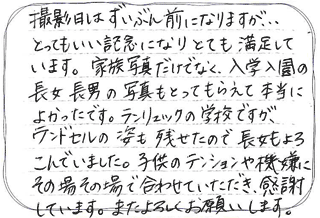 撮影日はずいぶん前になりますが、、
とってもいい記念になりとても満足して
います。家族写真だけでなく、入学入園の
長女長男の写真もとってもらえて本当に
よかったです。ランリュックの学校ですが、
ランドセルの姿も残せたので長女もよろ
こんでいました。子供のテンションや機嫌に
その場その場で合わせていただき、感謝
しています。またよろしくお願いします。